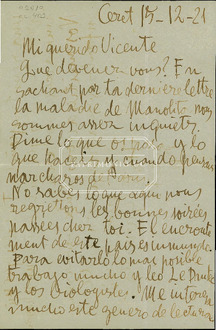 Ceret 15-12-21
Mi querido Vicente
Que devenez vous? En
sachant par ta derniere lettre
la maladie de Manolito nous
sommes assez inquiets
Dime lo que os pasa y lo
que haceis y cuando pensas
marcharos de Paris.
No sabes lo que aqui nous
regrettons les bonnes soirées
passées chez toi. El
de este pais es inmundo
para evitarlo lo mas posible
trabajo mucho y leo
y los Me interesa
mucho este genero de lectura